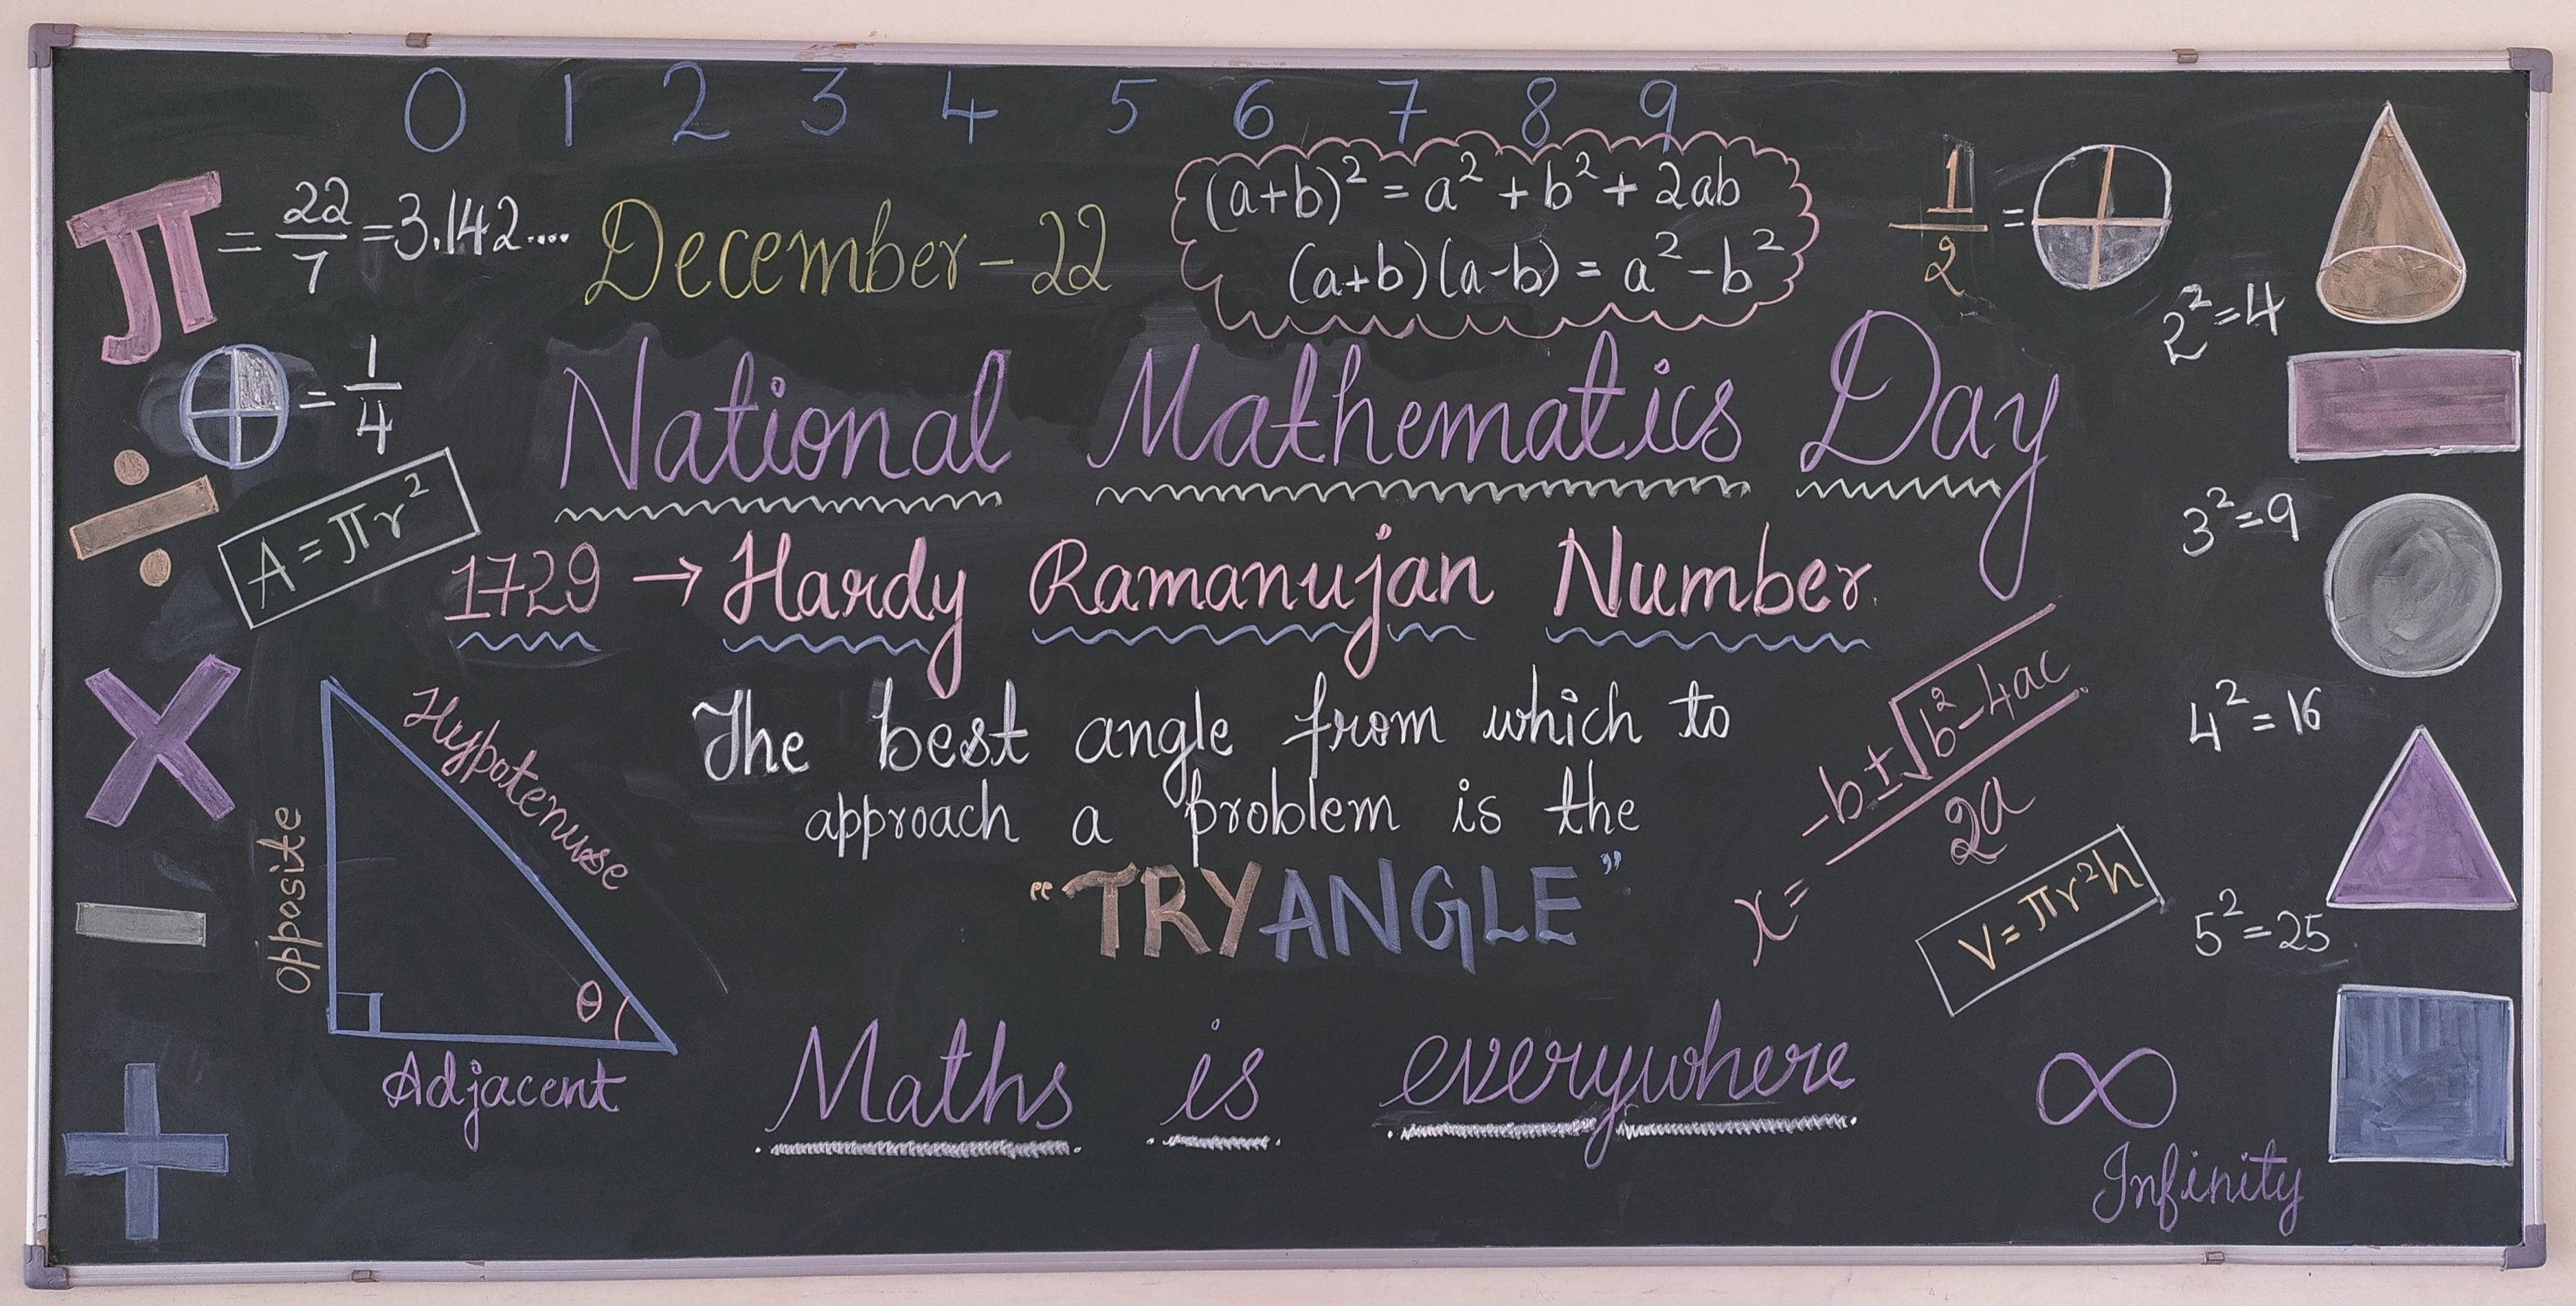 0 1 2 3 4 5 6 7 8 9
π = 22/7 = 3.142....
December - 22
(a+b)² = a² + b² + 2ab
(a+b)(a-b) = a² - b²
1/2 =
2² = 4
= 1/4
National Mathematics Day
÷
A = πr²
3² = 9
1729 → Hardy Ramanujan Number.
×
Hypotenuse
Opposite
θ
Adjacent
The best angle from which to
approach a problem is the
"TRYANGLE"
x = -b±√b²-4ac / 2a
4² = 16
V = πr²h
5² = 25
−
+
Maths is everywhere
∞
Infinity